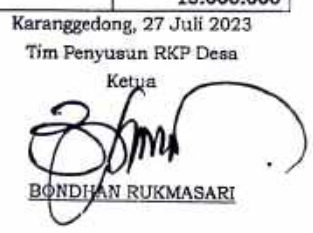 Karanggedong, 27 Juli 2023
Tim Penyusun RKP Desa
Ketua
BONDHAN RUKMASARI